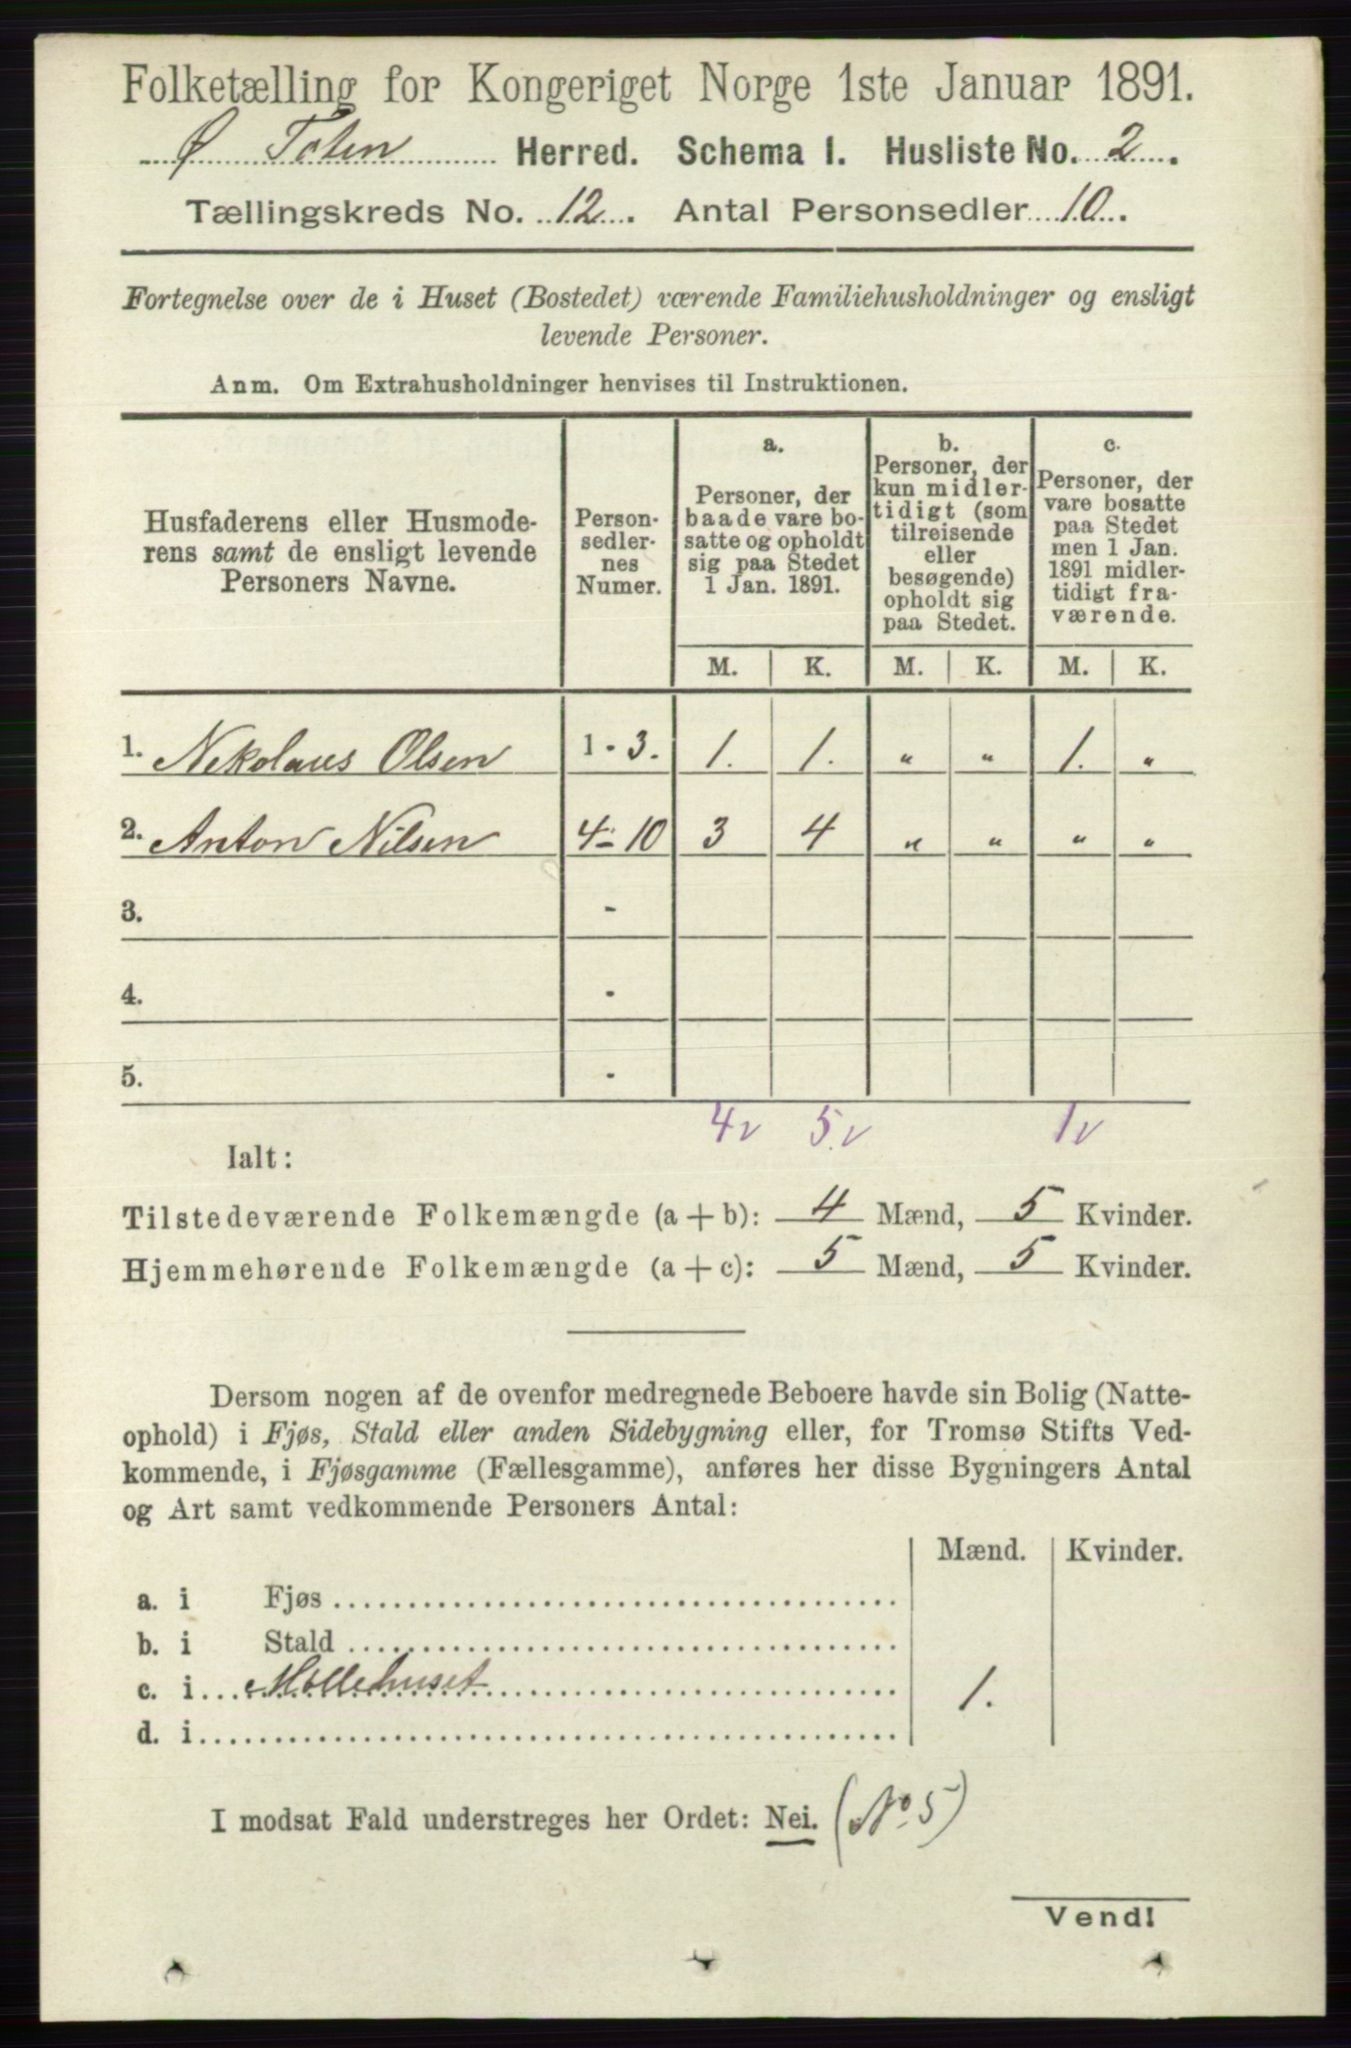 Folketælling for Kongeriget Norge 1ste Januar 1891.
Ø Toten Herred. Schema I. Husliste No. 2.
Tællingskreds No. 12. Antal Personsedler 10.
Fortegnelse over de i Huset (Bostedet) værende Familiehusholdninger og ensligt
levende Personer.
Anm. Om Extrahusholdninger henvises til Instruktionen.
Husfaderens eller Husmode-
rens samt de ensligt levende
Personers Navne.
Person-
sedler-
nes
Numer.
a.
Personer, der
baade vare bo-
satte og opholdt
sig paa Stedet
1 Jan. 1891.
b.
Personer, der
kun midler-
tidigt (som
tilreisende
eller
besøgende)
opholdt sig
paa Stedet.
c.
Personer, der
vare bosatte
paa Stedet
men 1 Jan.
1891 midler-
tidigt fra-
værende.
M. K. M. K. M. K.
1. Nekolaus Olsen 1 - 3. 1. 1. " " 1. "
2. Anton Nilsen 4 - 10 3 4 " " " "
3. -
4. -
5. -
4v 5v 1v
Ialt:
Tilstedeværende Folkemængde (a + b): 4 Mænd, 5 Kvinder.
Hjemmehørende Folkemængde (a + c): 5 Mænd, 5 Kvinder.
Dersom nogen af de ovenfor medregnede Beboere havde sin Bolig (Natte-
ophold) i Fjøs, Stald eller anden Sidebygning eller, for Tromsø Stifts Ved-
kommende, i Fjøsgamme (Fællesgamme), anføres her disse Bygningers Antal
og Art samt vedkommende Personers Antal:
Mænd. Kvinder.
a. i Fjøs
b. i Stald
c. i Mollehuset 1.
d. i
I modsat Fald understreges her Ordet: Nei. (No. 5)
Vend!